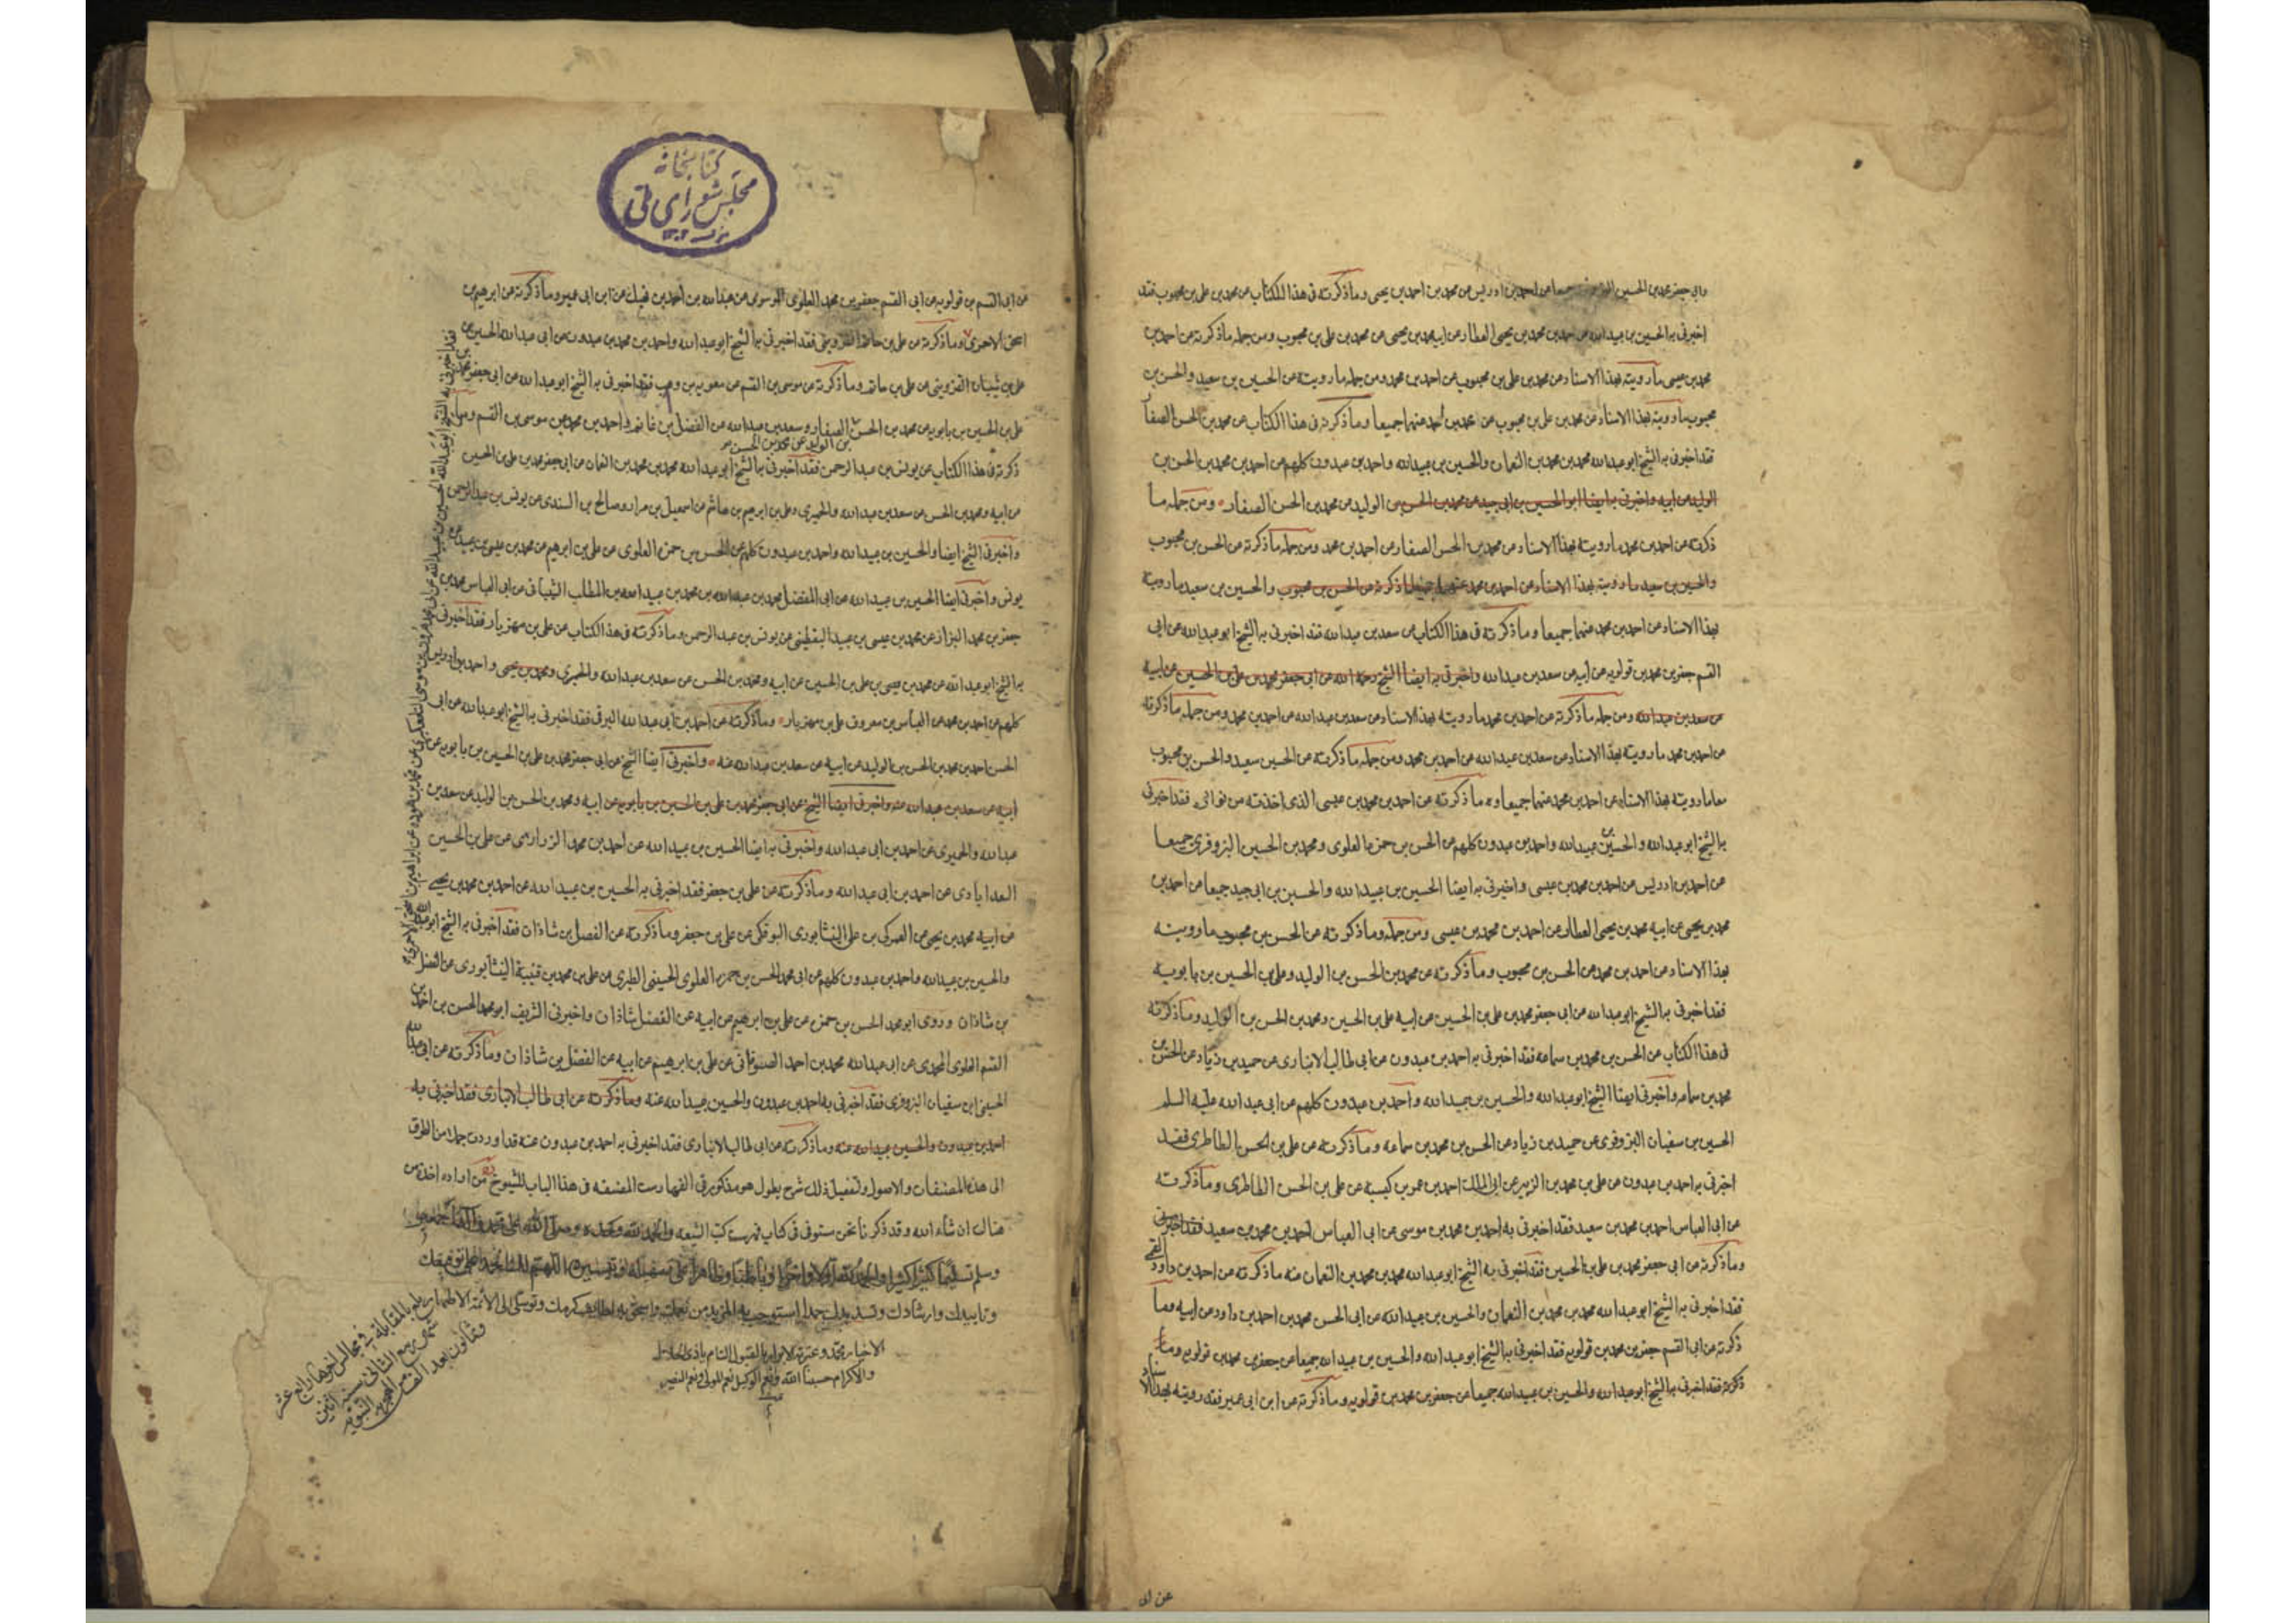 وابي جعفر محمد بن الحسين البزوفري جميعا عن احمد بن ادريس عن محمد بن احمد بن يحيى وما ذكرته في هذا الكتاب عن محمد بن علي بن محبوب فقد
اخبرني به الحسين بن عبيد الله عن احمد بن محمد بن يحيى العطار عن ابيه محمد بن يحيى عن محمد بن علي بن محبوب ومن جمله ما ذكرته عن احمد بن
محمد بن عيسى ما رويته بهذا الاسناد عن محمد بن علي بن محبوب عن احمد بن محمد ومن جمله ما رويته عن الحسين بن سعيد والحسن بن
محبوب ما رويته بهذا الاسناد عن محمد بن علي بن محبوب عن احمد بن محمد عنهما جميعا وما ذكرته في هذا الكتاب عن محمد بن الحسن الصفا
فقد اخبرني به الشيخ ابو عبد الله محمد بن محمد بن النعمان والحسين بن عبيد الله واحمد بن عبدون كلهم عن احمد بن محمد بن الحسن بن
الوليد عن ابيه واخبرني به ايضا ابو الحسين بن ابي جيد عن محمد بن الحسن بن الوليد عن محمد بن الحسن الصفار ومن جمله ما
ذكرته عن احمد بن محمد ما رويته بهذا الاسناد عن محمد بن الحسن الصفار عن احمد بن محمد ومن جمله ما ذكرته عن الحسن بن محبوب
والحسين بن سعيد ما رويته بهذا الاسناد عن احمد بن محمد عنهما جميعا ما ذكرته عن الحسن بن محبوب والحسين بن سعيد ما رويته
بهذا الاسناد عن احمد بن محمد عنهما جميعا وما ذكرته في هذا الكتاب عن سعد بن عبد الله فقد اخبرني به الشيخ ابو عبد الله عن ابي
القسم جعفر بن محمد بن قولويه عن ابيه عن سعد بن عبد الله واخبرني به ايضا الشيخ رحمه الله عن ابي جعفر محمد بن علي بن الحسين عن ابيه
عن سعد بن عبد الله ومن جمله ما ذكرته عن احمد بن محمد ما رويته بهذا الاسناد عن سعد بن عبد الله عن احمد بن محمد ومن جمله ما ذكرته
عن احمد بن محمد ما رويته بهذا الاسناد عن سعد بن عبد الله عن احمد بن محمد ومن جمله ما ذكرته عن الحسين سعيد والحسن بن محبوب
معا ما رويته بهذا الاسناد عن احمد بن محمد عنهما جميعا وما ذكرته عن احمد بن محمد بن عيسى الذي اخذته من نوادره فقد اخبرني
به الشيخ ابو عبد الله والحسين بن عبيد الله واحمد بن عبدون كلهم عن الحسن بن حمزه العلوي ومحمد بن الحسين البزوفري جميعا
عن احمد بن ادريس عن احمد بن محمد بن عيسى واخبرني به ايضا الحسين بن عبيد الله والحسين بن ابي جيد جميعا عن احمد بن
محمد بن يحيى عن ابيه محمد بن يحيى العطار عن احمد بن محمد بن عيسى ومن جمله وما ذكرته عن الحسن بن محبوب ما رويته
بهذا الاسناد عن احمد بن محمد عن الحسن بن محبوب وما ذكرته عن محمد بن الحسن بن الوليد وعلي بن الحسين بن بابويه
فقد اخبرني به الشيخ ابو عبد الله عن ابي جعفر محمد بن علي بن الحسين عن ابيه علي بن الحسين ومحمد بن الحسن بن الوليد وما ذكرته
في هذا الكتاب عن الحسن بن محمد بن سماعه فقد اخبرني به احمد بن عبدون عن ابي طالب الانباري عن حميد بن زياد عن الحسن بن
محمد بن سماعه واخبرني ايضا الشيخ ابو عبد الله والحسين بن عبيد الله واحمد بن عبدون كلهم عن ابي عبد الله عليه السلم
الحسين بن سفيان البزوفري عن حميد بن زياد عن الحسن بن محمد بن سماعه وما ذكرته عن علي بن الحسن الطاطري فقد
اخبرني به احمد بن عبدون عن علي بن محمد بن الزبير عن ابي الملك احمد بن عمر بن كيسبه عن علي بن الحسن الطاطري وما ذكرته
عن ابي العباس احمد بن محمد بن سعيد فقد اخبرني به احمد بن محمد بن موسى عن ابي العباس احمد بن محمد بن سعيد فقد اخبرني
وما ذكرته عن ابي جعفر محمد بن علي بن الحسين فقد اخبرني به الشيخ ابو عبد الله محمد بن محمد بن النعمان عنه ما ذكرته عن احمد بن داود القمي
فقد اخبرني به الشيخ ابو عبد الله محمد بن محمد بن النعمان والحسين بن عبيد الله عن ابي الحسن محمد بن احمد بن داود عن ابيه وما
ذكرته عن ابي القسم جعفر بن محمد بن قولويه فقد اخبرني به الشيخ ابو عبد الله والحسين بن عبيد الله جميعا عن جعفر بن محمد بن قولويه وما
ذكرته فقد اخبرني به الشيخ ابو عبد الله والحسين بن عبيد الله جميعا عن جعفر بن محمد بن قولويه وما ذكرته عن ابن ابي عمير فقد رويته بهذا الاسناد
عن ابي
كتابخانه
مجلس شوراي ملي
عن ابي القسم بن قولويه عن ابي القسم جعفر بن محمد العلوي الموسوي عن عبد الله بن احمد بن نهيك عن ابن ابي عمير وما ذكرته عن ابرهيم بن
اسحق الاحمري وما ذكرته عن علي بن حاتم القزويني فقد اخبرني به الشيخ ابو عبد الله واحمد بن محمد بن عبدون عن ابي عبد الله الحسين بن
علي بن شيبان القزويني عن علي بن حاتم وما ذكرته عن موسى بن القسم عن معويه بن وهب فقد اخبرني به الشيخ ابو عبد الله عن ابي جعفر محمد بن
علي بن الحسين بن بابويه عن محمد بن الحسن الصفار وسعد بن عبد الله عن الفضل بن غانم واحمد بن محمد عن موسى بن القسم وما
بن الوليد عن محمد بن الحسن
ذكرته في هذا الكتاب عن يونس بن عبد الرحمن فقد اخبرني به الشيخ ابو عبد الله محمد بن محمد بن النعمان عن ابي جعفر محمد بن علي بن الحسين
عن ابيه ومحمد بن الحسن عن سعد بن عبد الله والحميري وعلي بن ابرهيم بن هاشم عن اسمعيل بن مرار وصالح بن السندي عن يونس بن عبد الرحمن
واخبرني الشيخ ايضا والحسين بن عبيد الله واحمد بن عبدون كلهم عن الحسن بن حمزه العلوي عن علي بن ابرهيم عن محمد بن عيسى بن عبيد عن
يونس واخبرني ايضا الحسين بن عبيد الله عن ابي المفضل محمد بن عبد الله بن محمد بن عبيد الله بن المطلب الشيباني عن ابي العباس محمد بن
جعفر بن محمد البزاز عن محمد بن عيسى بن عبيد اليقطيني عن يونس بن عبد الرحمن وما ذكرته في هذا الكتاب عن علي بن مهزيار فقد اخبرني
به الشيخ ابو عبد الله عن محمد بن عيسى بن علي بن الحسين عن ابيه ومحمد بن الحسن عن سعد بن عبد الله والحميري ومحمد بن يحيى واحمد بن ادريس
كلهم عن احمد بن محمد عن العباس بن معروف علي بن مهزيار وما ذكرته عن احمد بن ابي عبد الله البرقي فقد اخبرني به الشيخ ابو عبد الله عن ابي
الحسن احمد بن محمد بن الحسن بن الوليد عن ابيه عن سعد بن عبد الله عنه واخبرني ايضا الشيخ عن ابي جعفر محمد بن علي بن الحسين بن بابويه عن
ابيه عن سعد بن عبد الله عنه واخبرني ايضا الشيخ عن ابي جعفر محمد بن علي بن الحسين بن بابويه عن ابيه ومحمد بن الحسن بن الوليد عن سعد بن
عبد الله والحميري عن احمد بن ابي عبد الله واخبرني به ايضا الحسين بن عبيد الله عن احمد بن محمد الزراري عن علي بن الحسين
السعدابادي عن احمد بن ابي عبد الله وما ذكرته عن علي بن جعفر فقد اخبرني به الحسين بن عبيد الله عن احمد بن محمد بن يحيى
عن ابيه محمد بن يحيى عن العمركي بن علي النيشابوري البوفكي عن علي بن جعفر وما ذكرته عن الفضل بن شاذان فقد اخبرني به الشيخ ابو عبد الله
والحسين بن عبيد الله واحمد بن عبدون كلهم عن ابي محمد الحسن بن حمزه العلوي الحسيني الطبري عن علي بن محمد بن قتيبة النيشابوري عن الفضل
بن شاذان وروى ابو محمد الحسن بن حمزه عن علي بن ابرهيم عن ابيه عن الفضل شاذان واخبرني الشريف ابو محمد الحسن بن احمد بن
القسم العلوي المحمدي عن ابي عبد الله محمد بن احمد الصفواني عن علي بن ابرهيم عن ابيه عن الفضل بن شاذان وما ذكرته عن ابي عبد الله
الحسين ابن سفيان البزوفري فقد اخبرني به احمد بن عبدون والحسين عبيد الله عنه وما ذكرته عن ابي طالب الانباري فقد اخبرني به
احمد بن عبدون والحسين عبيد الله عنه وما ذكرته عن ابي طالب الانباري فقد اخبرني به احمد بن عبدون عنه قد اوردت جملا من الطرق
الى هذه المصنفات والاصول ولتفصيل ذلك شرح يطول هو مذكور في الفهارست المصنفه في هذا الباب للشيوخ من اراده اخذه من
هناك ان شاء الله وقد ذكرنا نحن مستوفى في كتاب فهرست كتب الشيعه والحمد لله وحده وصلى الله على محمد وآله اجمعين
وسلم تسليما كثيرا كثيرا والحمد لله اولا واخرا وباطنا وظاهرا
وتاييدك وارشادك وتسديدك حمدا استوجب به المزيد من نعمك واستحق به لطائف كرمك وتوسلي الى الأئمة الاطهار
الاخيار محمد وعترته الابرار
والاكرام حسبنا الله ونعم الوكيل نعم المولى ونعم النصير
فقد اخبرني به الشيخ ابو عبد الله الحسين بن عبيد الله عن ابي محمد هرون بن موسى التلعكبري عن محمد بن هوذه عن ابراهيم بن اسحق الاحمري
بلغ بالمقابلة في مجالس اخرها رابع عشر
شهر ربيع الثاني سنة اثنين
وثمانين بعد الالف من الهجرة النبويه